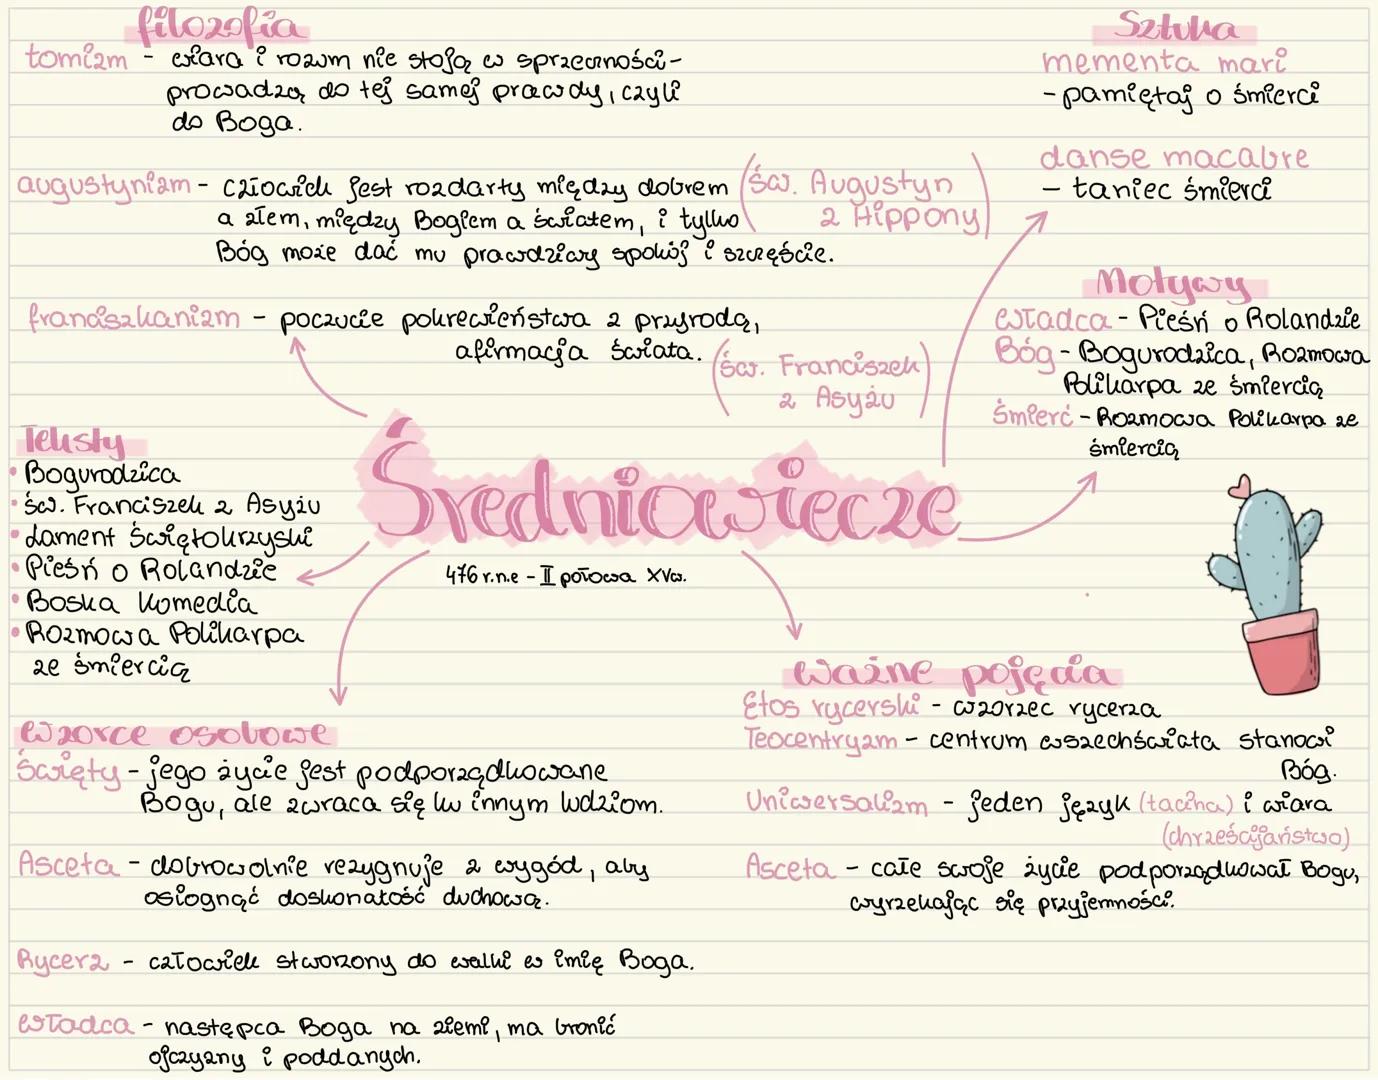 filozofia
tomizm - wiara i rozum nie stoją w sprzeczności -
prowadzą do tej samej prawdy, czyli
do Boga.
augustynizm - człowiek jest rozdarty między dobrem
a złem, między Bogiem a światem, i tylko
Bóg może dać mu prawdziwy spokój i szczęście.
(św. Augustyn
z Hippony)
franciszkanizm - poczucie pokrewieństwa z przyrodą,
afirmacja świata.
(św. Franciszek
z Asyżu)
Sztuka
mementa mari
- pamiętaj o śmierci
danse macabre
- taniec śmierci
Motywy
Władca - Pieśń o Rolandzie
Bóg - Bogurodzica, Rozmowa
Polikarpa ze śmiercią
Śmierć - Rozmowa Polikarpa ze
śmiercią
Teksty
• Bogurodzica
• św. Franciszek z Asyżu
• Lament Świętokrzyski
• Pieśń o Rolandzie
• Boska Komedia
• Rozmowa Polikarpa
ze śmiercią
Średniowiecze
476 r.n.e - II połowa XVw.
Wzorce osobowe
Święty - jego życie jest podporządkowane
Bogu, ale zwraca się ku innym ludziom.
Asceta - dobrowolnie rezygnuje z wygód, aby
osiągnąć doskonałość duchową.
Rycerz - człowiek stworzony do walki w imię Boga.
Władca - następca Boga na ziemi, ma bronić
ojczyzny i poddanych.
Ważne pojęcia
Etos rycerski - wzorzec rycerza
Teocentryzm - centrum wszechświata stanowi
Bóg.
Uniwersalizm - jeden język (łacina) i wiara
(chrześcijaństwo)
Asceta - całe swoje życie podporządkował Bogu,
wyrzekając się przyjemności.